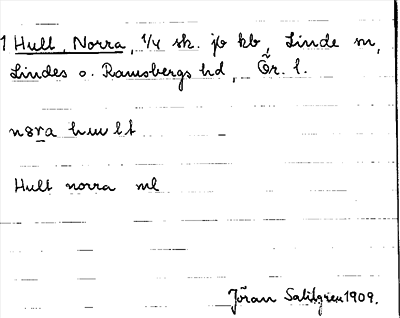 1 Hult, Norra, 1/4 sk. jb kb, Linde m,
Lindes o. Ramsbergs hd, Ör. l.
nƨra hult
Hult norra ml
Jöran Sahlgren 1909.